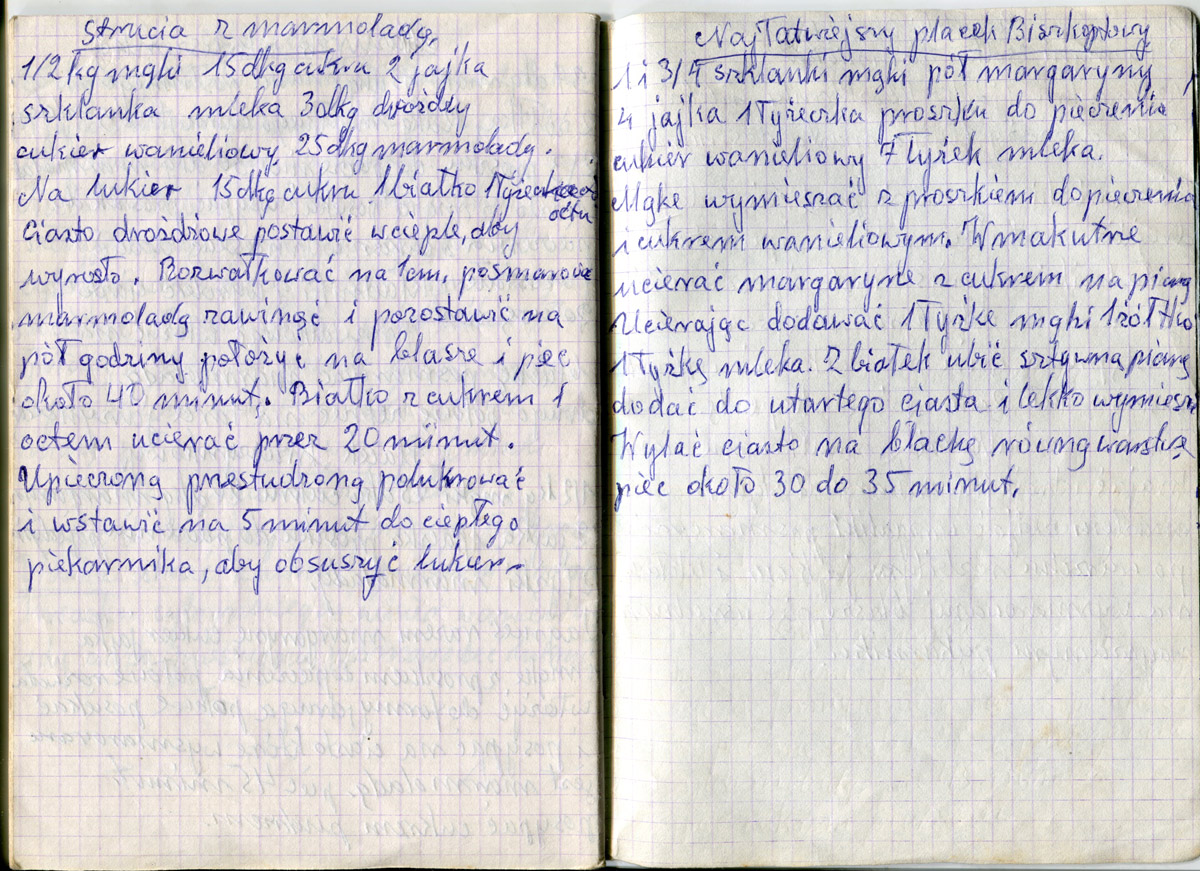 Strucia z marmoladą
1/2 kg mąki 15 dkg cukru 2 jajka
szklanka mleka 3 dkg drożdży
cukier waniliowy 25 dkg marmolady.
Na lukier 15 dkg cukru 1 białko 1 łyżeczka
octu
Ciasto drożdżowe postawić w cieple, aby
wyrosło. Rozwałkować na 1 cm. posmarować
marmoladą zawinąć i pozostawić na
pół godziny położyć na blasze i piec
około 40 minut. Białko z cukrem i
octem ucierać przez 20 minut.
Upieczoną przestudzoną polukrować
i wstawić na 5 minut do ciepłego
piekarnika, aby obsuszyć lukier.
Najłatwiejszy placek Biszkoptowy
1 i 3/4 szklanki mąki pół margaryny
4 jajka 1 łyżeczka proszku do pieczenia
cukier waniliowy 7 łyżek mleka.
Mąke wymieszać z proszkiem do pieczenia
i cukrem waniliowym. W makutrze
ucierać margaryne z cukrem na pianę
Ucierając dodawać 1 łyżkę mąki 1 żółtko
1 łyżkę mleka. Z białek ubić sztywną pianę
dodać do utartego ciasta i lekko wymiesza
Wylać ciasto na blachę równą warstwą
piec około 30 do 35 minut.